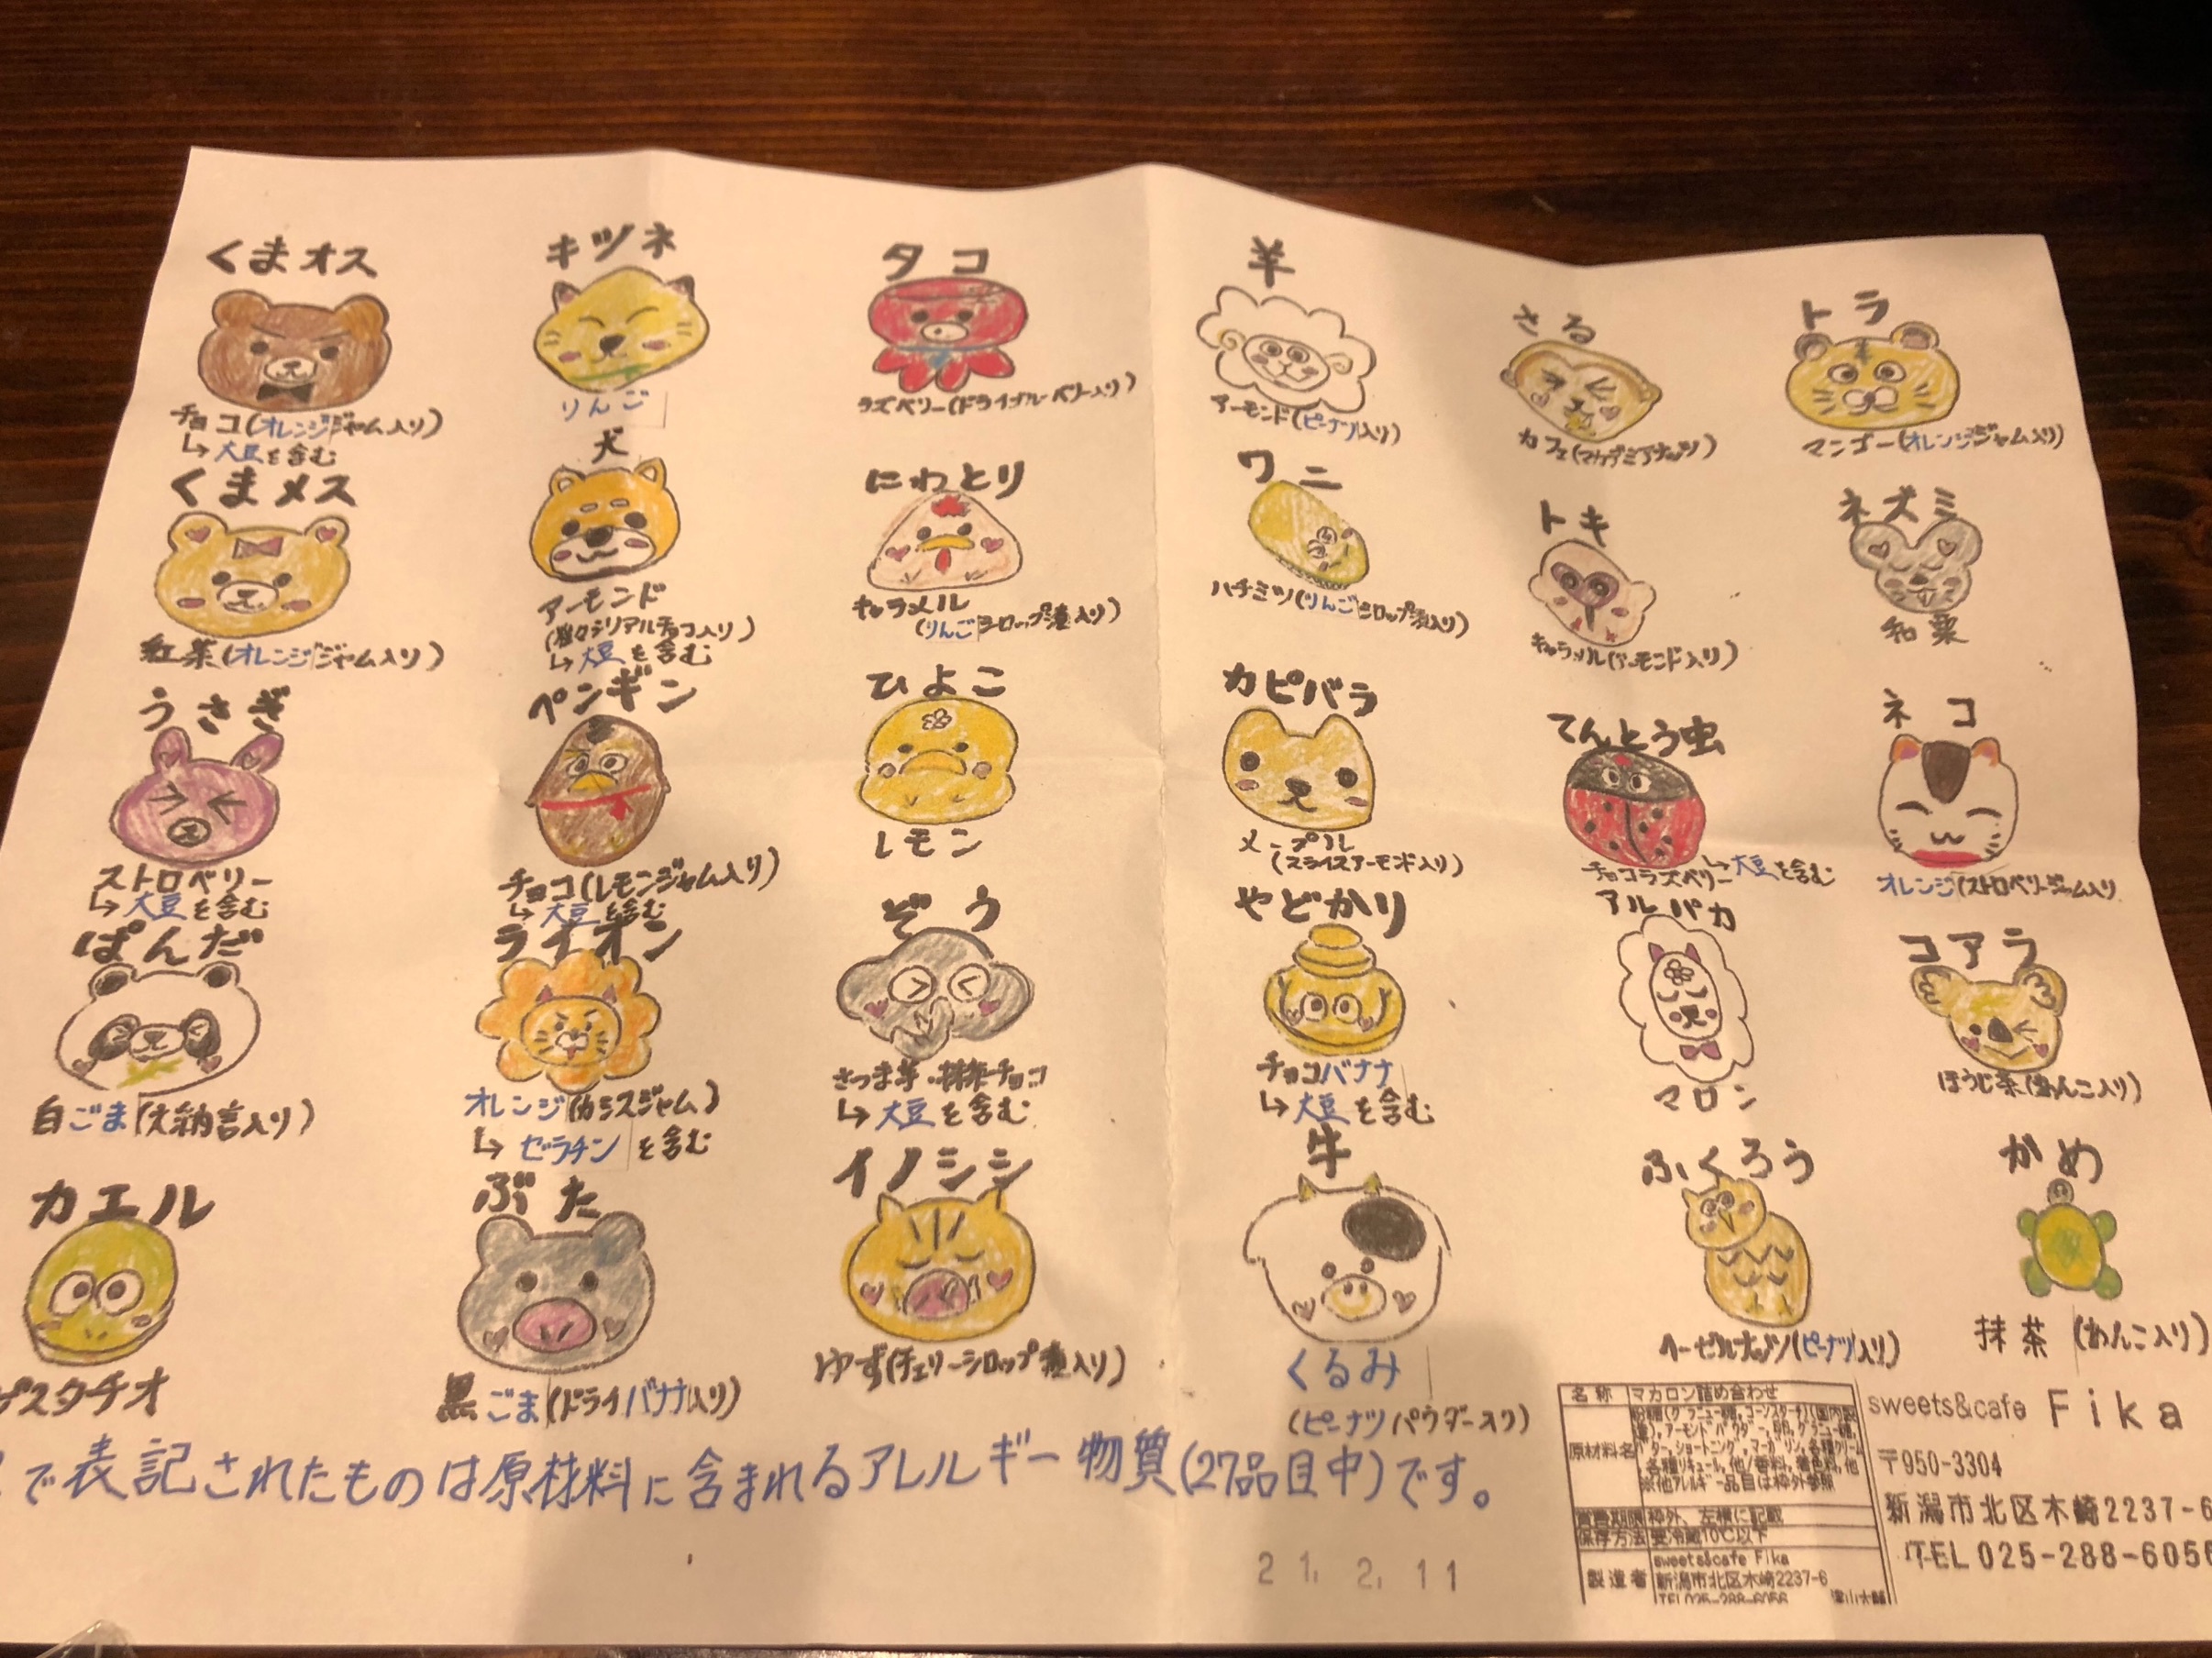 くまオス
チョコ(オレンジジャム入り)
↳大豆を含む
くまメス
紅茶(オレンジジャム入り)
うさぎ
ストロベリー
↳大豆を含む
ぱんだ
白ごま(大納言入り)
カエル
ピスタチオ
キツネ
りんご
犬
アーモンド
シリアルチョコ入り)
↳大豆を含む
ペンギン
チョコ(レモンジャム入り)
↳大豆を含む
ライオン
オレンジ(カシスジャム)
↳ゼラチンを含む
ぶた
黒ごま(ドライバナナ入り)
タコ
ラズベリー(ドライブルーベリー入り)
にわとり
キャラメル
(りんごシロップ漬入り)
ひよこ
レモン
ぞう
さつま芋・抹茶チョコ
↳大豆を含む
イノシシ
ゆず(チェリーシロップ漬入り)
羊
アーモンド(ピーナツ入り)
ワニ
ハチミツ(りんごシロップ漬入り)
カピバラ
メープル
(スライスアーモンド入り)
やどかり
チョコバナナ
↳大豆を含む
牛
くるみ
(ピーナツパウダー入り)
さる
カフェ(マカデミアナッツ)
トキ
キャラメル(アーモンド入り)
てんとう虫
チョコラズベリー↳大豆を含む
アルパカ
マロン
ふくろう
ヘーゼルナッツ(ピーナツ入り)
トラ
マンゴー(オレンジジャム入り)
ネズミ
和栗
ネコ
オレンジ(ストロベリージャム入り
コアラ
ほうじ茶(あんこ入り)
かめ
抹茶(あんこ入り)
で表記されたものは原材料に含まれるアレルギー物質(27品目中)です。
21.2.11
名称 マカロン詰め合わせ
原材料名
アーモンドパウダー,
バター,ショートニング,マーガリン,各種クリーム
各種リキュール,他/香料,着色料,他
※他アレルギー品目は枠外参照
賞味期限 枠外、左横に記載
保存方法 要冷蔵10℃以下
製造者 sweets&cafe Fika
新潟市北区木崎2237-6
TEL025-288-6056
sweets&cafe Fika
〒950-3304
新潟市北区木崎2237-6
TEL 025-288-6056